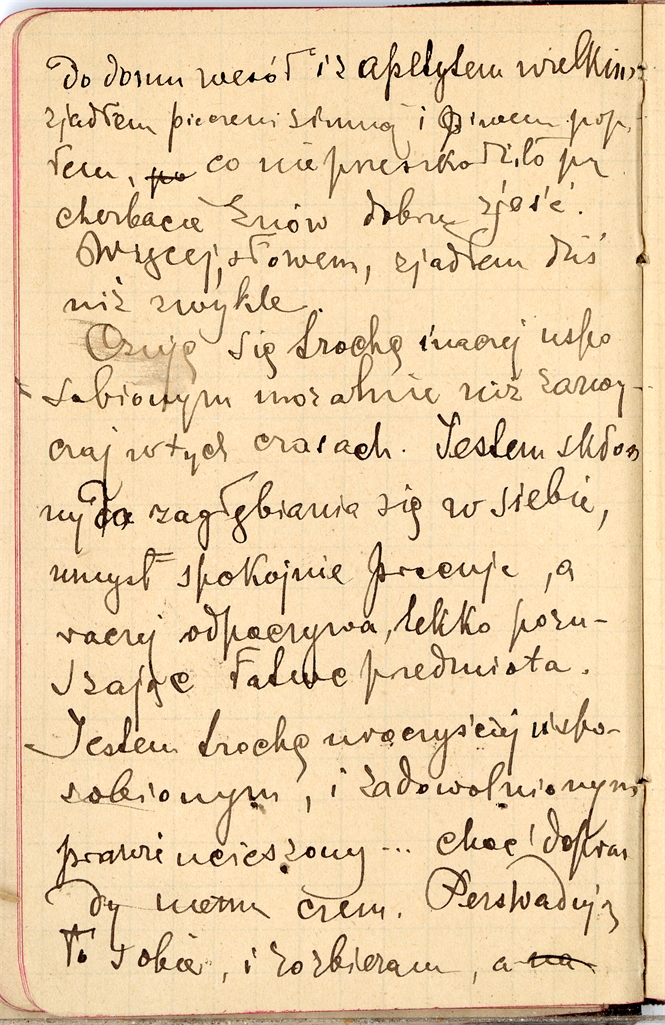 Do domu wesół i z apetytem wielkim
zjadłem pieczeni zimną i piwem pop.
łem, po co nie przeszkodziło przy
cherbacie znów dobrze zjeść.
Więcej, słowem, zjadłem dziś
niż zwykle.
Czuję się trochę inaczej uspo
sobionym moralnie niż zazwy-
czaj w tych czasach. Jestem skłon
ny do zagłębiania się w siebie,
umysł spokojnie pracuje, a
raczej odpoczywa, lekko poru-
szając łatwe przedmiota.
Jestem trochę uroczyściej uspo-
sobionym, i zadowolnionym
prawie ucieszony... choć dopraw
dy niema czem. Perswaduję
to sobie, i rozbieram, a na